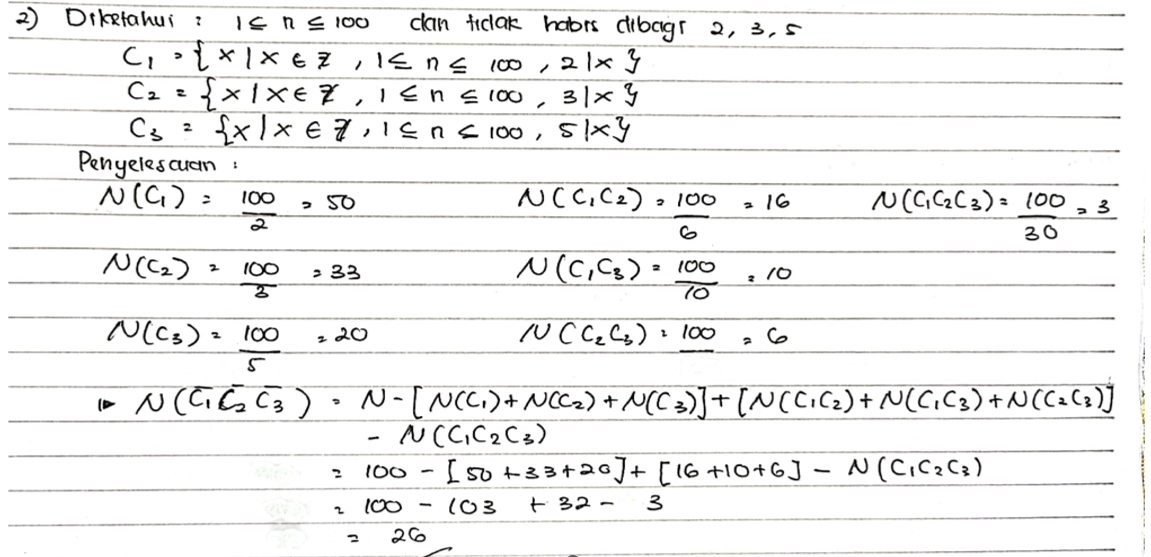 2) Diketahui : 1 ≤ n ≤ 100 dan tidak habis dibagi 2, 3, 5
C₁ = { x | x ∈ Z , 1 ≤ n ≤ 100 , 2 | x }
C₂ = { x | x ∈ Z , 1 ≤ n ≤ 100 , 3 | x }
C₃ = { x | x ∈ Z , 1 ≤ n ≤ 100 , 5 | x }
Penyelesaian :
N(C₁) = 100/2 = 50 N(C₁C₂) = 100/6 = 16 N(C₁C₂C₃) = 100/30 = 3
N(C₂) = 100/3 = 33 N(C₁C₃) = 100/10 = 10
N(C₃) = 100/5 = 20 N(C₂C₃) = 100/ = 6
▷ N(C̄₁ C̄₂ C̄₃) = N - [N(C₁) + N(C₂) + N(C₃)] + [N(C₁C₂) + N(C₁C₃) + N(C₂C₃)]
- N(C₁C₂C₃)
= 100 - [50 + 33 + 20] + [16 + 10 + 6] - N(C₁C₂C₃)
= 100 - 103 + 32 - 3
= 26